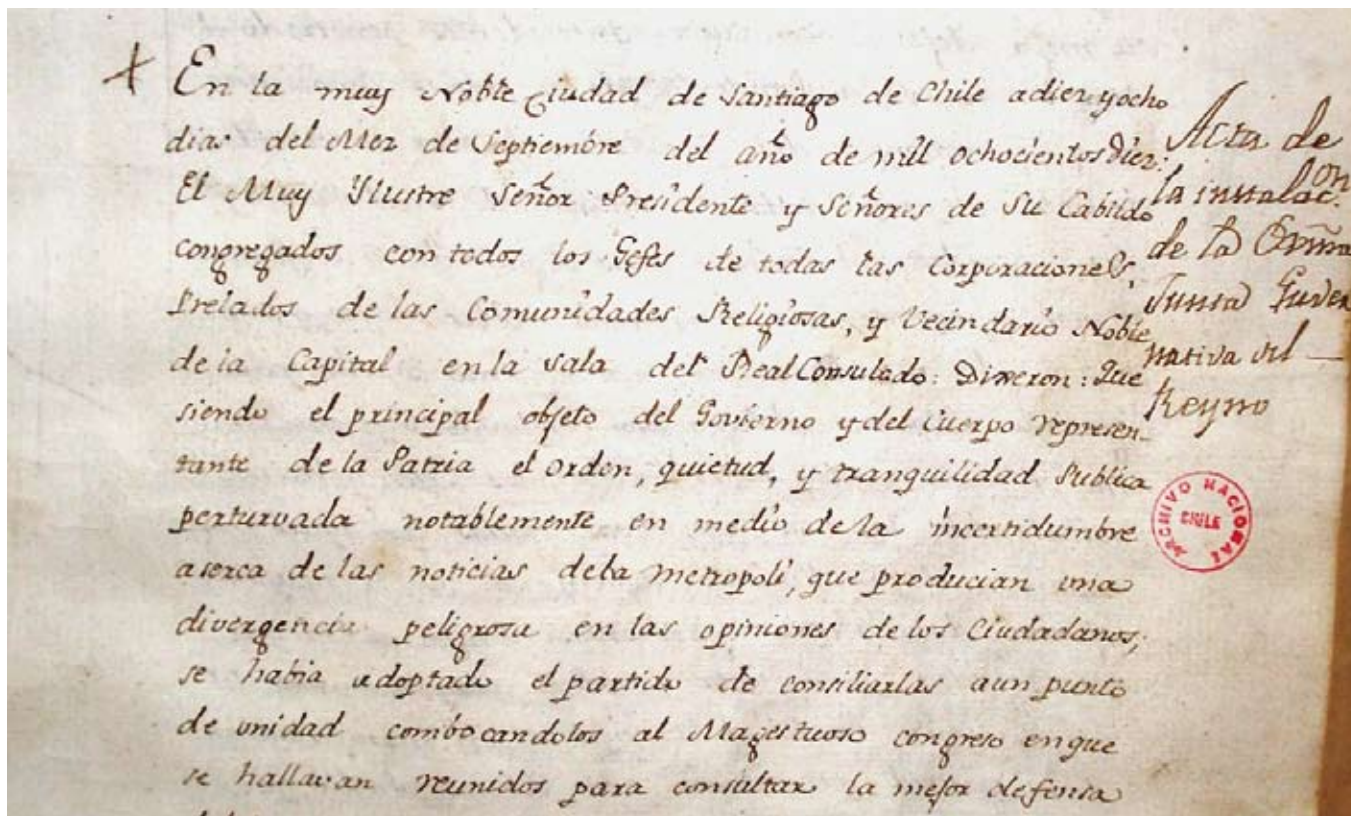 En la muy Noble Ciudad de Santiago de Chile adiez yocho
dias del Mez de Septiembre del año de mil ochocientos diez:
El Muy Ylustre Señor Presidente y Señores de Su Cabildo
congregados con todos los Gefes de todas las Corporaciones,
Prelados de las Comunidades Religiosas, y Vecindario Noble
de la Capital en la sala del Real Consulado: Dixeron: Que
siendo el principal objeto del Govierno y del Cuerpo represen-
tante de la Patria el orden, quietud, y tranquilidad Publica
perturvada notablemente en medio de la incertidumbre
aserca de las noticias dela metropoli, que producian una
divergencia peligrosa en las opiniones de los Ciudadanos,
se habia adoptado el partido de consiliarlas aun punto
de unidad combocandolos al Magestuoso congreso en que
se hallavan reunidos para consultar la mejor defensa
Acta de
la instalac.on
de la
Junta Guver
nativa del
Reyno
ARCHIVO NACIONAL
CHILE